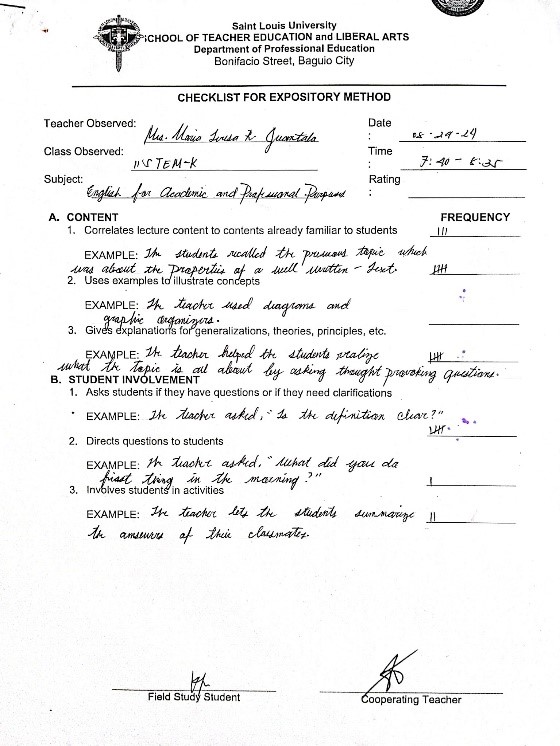 Saint Louis University
SCHOOL OF TEACHER EDUCATION and LIBERAL ARTS
Department of Professional Education
Bonifacio Street, Baguio City
CHECKLIST FOR EXPOSITORY METHOD
Teacher Observed: Mrs. Maria Teresa R. Date : 08-29-24
Class Observed: 11STEM-K Time : 7:40 - 8:35
Subject: English for Academic and Profesional Purposes Rating :
A. CONTENT FREQUENCY
1. Correlates lecture content to contents already familiar to students
EXAMPLE: The students recalled the previous topic which
was about the properties of a well written - text.
2. Uses examples to illustrate concepts
EXAMPLE: The teacher used diagrams and
graphic organizers.
3. Gives explanations for generalizations, theories, principles, etc.
EXAMPLE: The teacher helped the students realize
what the topic is all about by asking thought provoking questions.
B. STUDENT INVOLVEMENT
1. Asks students if they have questions or if they need clarifications
EXAMPLE: The teacher asked, "Is the definition clear?"
2. Directs questions to students
EXAMPLE: The teacher asked, "What did you do
first thing in the morning?"
3. Involves students in activities
EXAMPLE: The teacher lets the students summarize
the answers of their classmates.
Field Study Student Cooperating Teacher